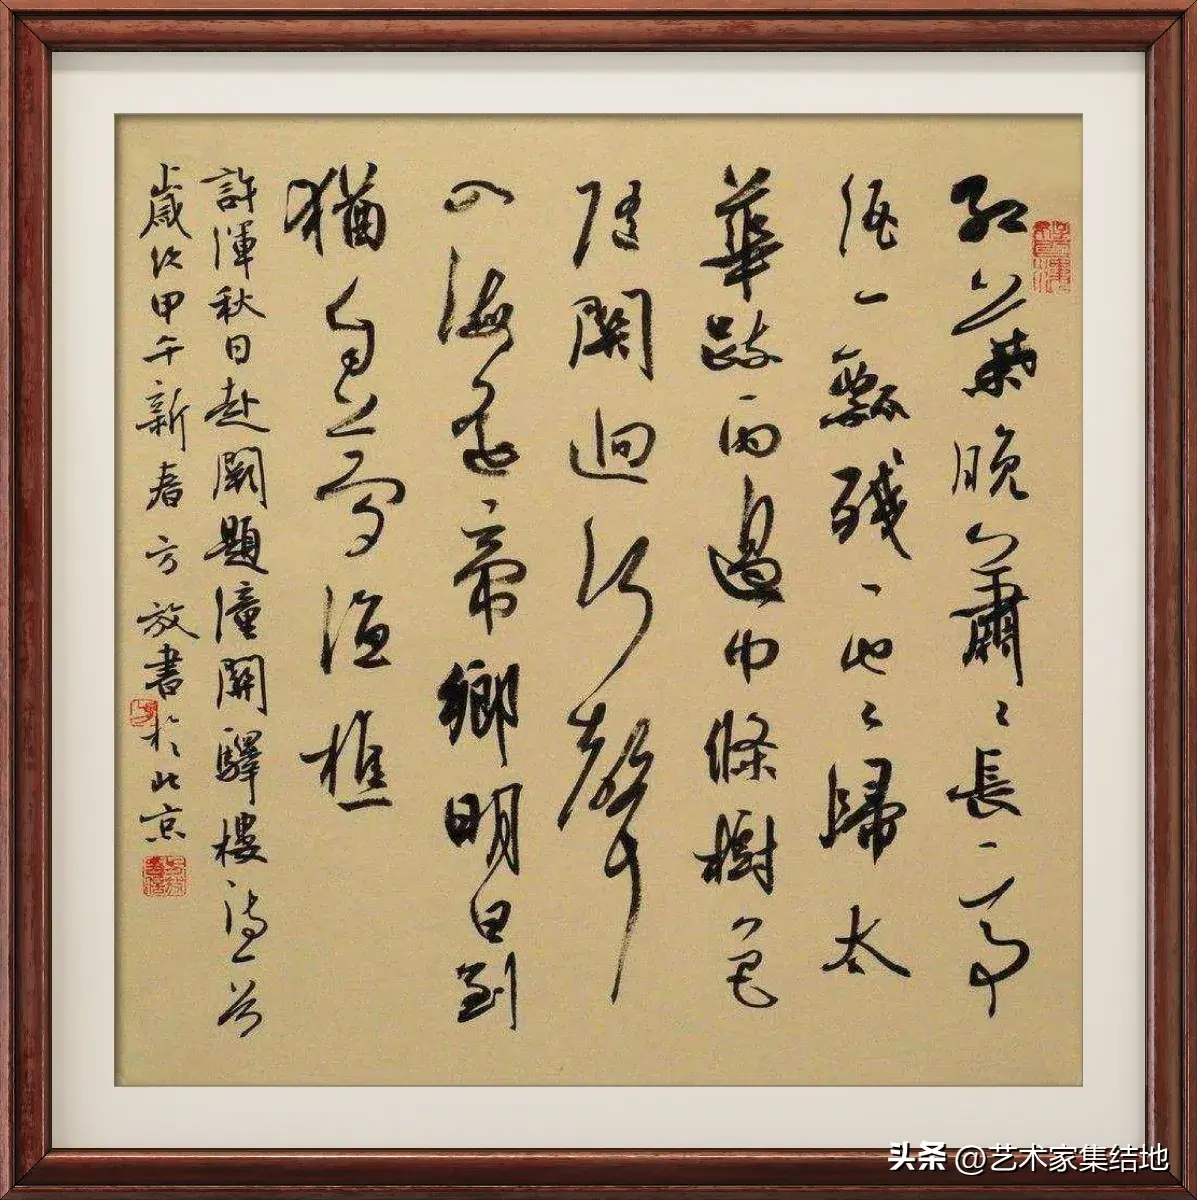 紅葉晚蕭〻長亭
酒一瓢殘雲歸太
華疏雨過中條樹色
隨關迥河聲
入海遥帝鄉明日到
猶自夢漁樵
許渾秋日赴闕題潼關驛樓詩一首
歲次甲午新春方放書於北京
头条 @艺术家集结地